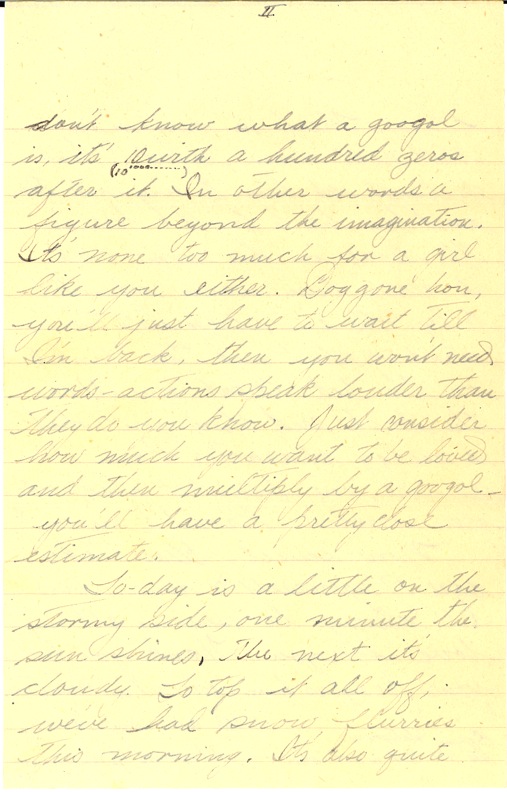 II
don't know what a googol
is, it's 10 with a hundred zeros
(10¹⁰⁰⁰........)
after it. In other words a
figure beyond the imagination.
It's none too much for a girl
like you either. Doggone' hon,
you'll just have to wait till
I'm back, then you won't need
words - actions speak louder than
they do you know. Just consider
how much you want to be loved
and then multiply by a googol -
you'll have a pretty close
estimate.
To-day is a little on the
stormy side, one minute the
sun shines, the next it's
cloudy. To top it all off,
we've had snow flurries
this morning. It's also quite